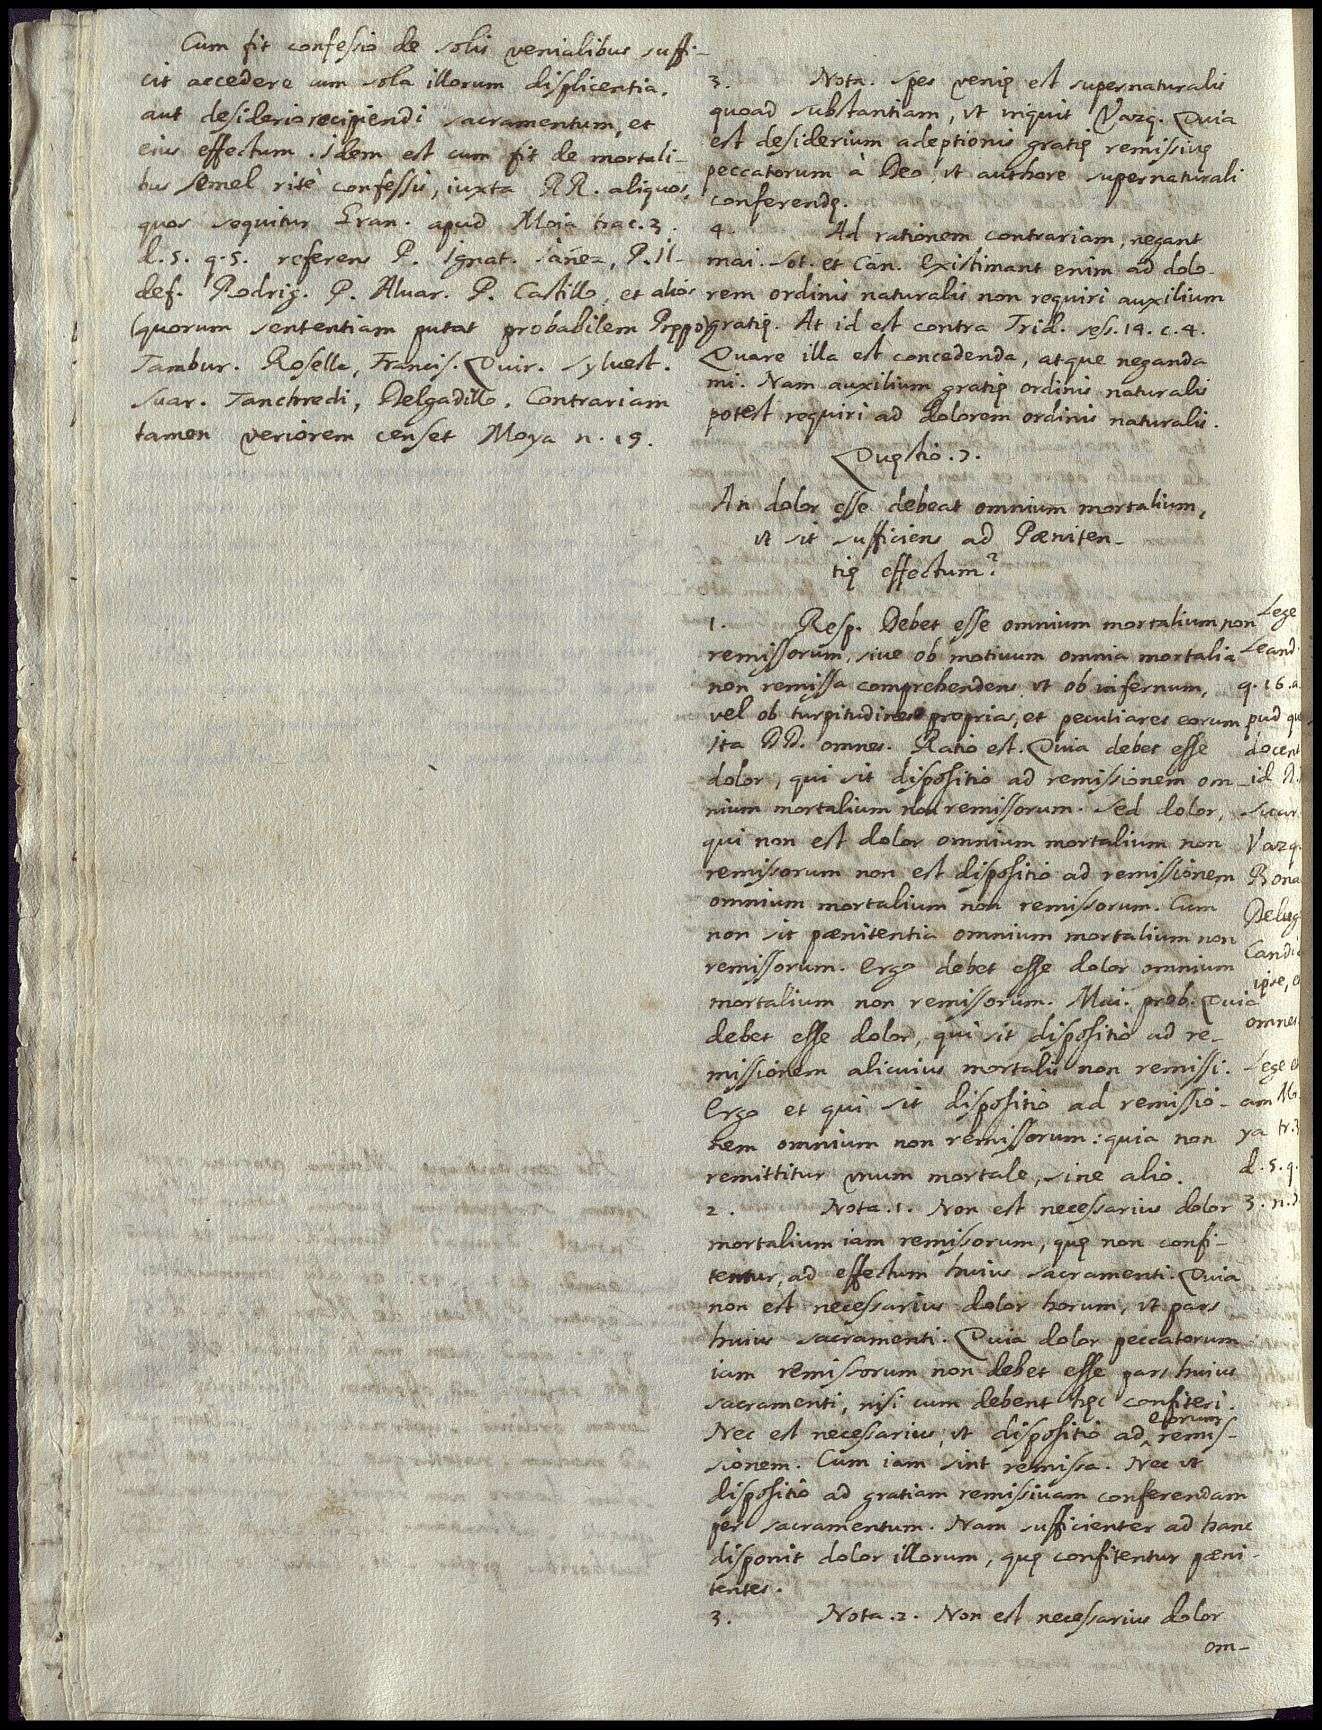 Cum fit confessio de solis venialibus suffi-
cit accedere cum sola illorum displicentia,
aut desiderio recipiendi sacramentum, et
eius effectum. Idem est cum fit de mortali-
bus semel ritè confessis, iuxta RR. aliquos,
quos sequitur Eran. apud Moia trac. 3.
d. 5. q. 5. referens P. Ignat. P. Il-
def. Rodrig. P. Aluar. P. Castillo, et alios
(quorum sententiam putat probabilem
Tambur. Rosella, Francis. Quir. Sylvest.
Suar. Tanchredi, Delgadillo. Contrariam
tamen veriorem censet Moya n. 19.
3. Nota. spes venię est supernaturalis
quoad substantiam, vt inquit Vazq. Quia
est desiderium adeptionis gratię remissiuę
peccatorum à Deo, vt authore supernaturali
conferendę.
4. Ad rationem contrariam, negant
mai. Sot. et Can. Existimant enim ad dolo-
rem ordinis naturalis non requiri auxilium
gratię. At id est contra Trid. ses. 14. c. 4.
Quare illa est concedenda, atque neganda
mi. Nam auxilium gratię ordinis naturalis
potest requiri ad dolorem ordinis naturalis.
Quęstio. 7.
An dolor esse debeat omnium mortalium,
vt sit sufficiens ad Pæniten-
tię effectum?
1. Resp. Debet esse omnium mortalium non
remissorum, siue ob motiuum omnia mortalia
non remissa comprehendens vt ob infernum,
vel ob turpitudines proprias, et peculiares eorum
ita DD. omnes. Ratio est. Quia debet esse
dolor, qui sit dispositio ad remissionem om-
nium mortalium non remissorum. Sed dolor,
qui non est dolor omnium mortalium non
remissorum non est dispositio ad remissionem
omnium mortalium non remissorum. Cum
non sit pænitentia omnium mortalium non
remissorum. Ergo debet esse dolor omnium
mortalium non remissorum. Mai. prob. Quia
debet esse dolor, qui sit dispositio ad re-
missionem alicuius mortalis non remissi.
Ergo et qui sit dispositio ad remissio-
nem omnium non remissorum: quia non
remittitur vnum mortale, sine alio.
2. Nota. 1. Non est necessarius dolor
mortalium iam remissorum, quę non confi-
tentur, ad effectum huius sacramenti. Quia
non est necessarius dolor horum, vt pars
huius sacramenti. Quia dolor peccatorum
iam remissorum non debet esse pars huius
sacramenti, nisi cum debent hęc confiteri.
Nec est necessarius, vt dispositio ad eorum remis-
sionem. Cùm iam sint remissa. Nec vt
dispositio ad gratiam remissiuam conferendam
per sacramentum. Nam sufficienter ad hanc
disponit dolor illorum, quę confitentur pæni-
tentes.
3. Nota. 2. Non est necessarius dolor
om-
Lege
Leand.
q. 16. a
pud
docent
id
Vazq.
Bona
Candi
ipse,
omnes
Lege et
am M
ya tr. 3
d. 5. q.
3. n.